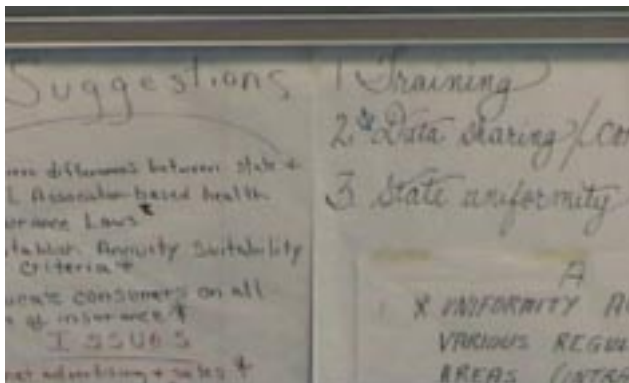 Suggestions
differences between state +
Association-based health
Laws
Annuity Suitability
Criteria *
consumers on all
of insurance *
ISSUES
advertising + sales *
1 Training
2. * Data sharing /
3. State uniformity
A
* UNIFORMITY
VARIOUS
AREAS